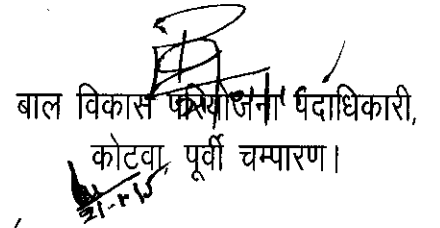 बाल विकास परियोजना पदाधिकारी,
कोटवा, पूर्वी चम्पारण।